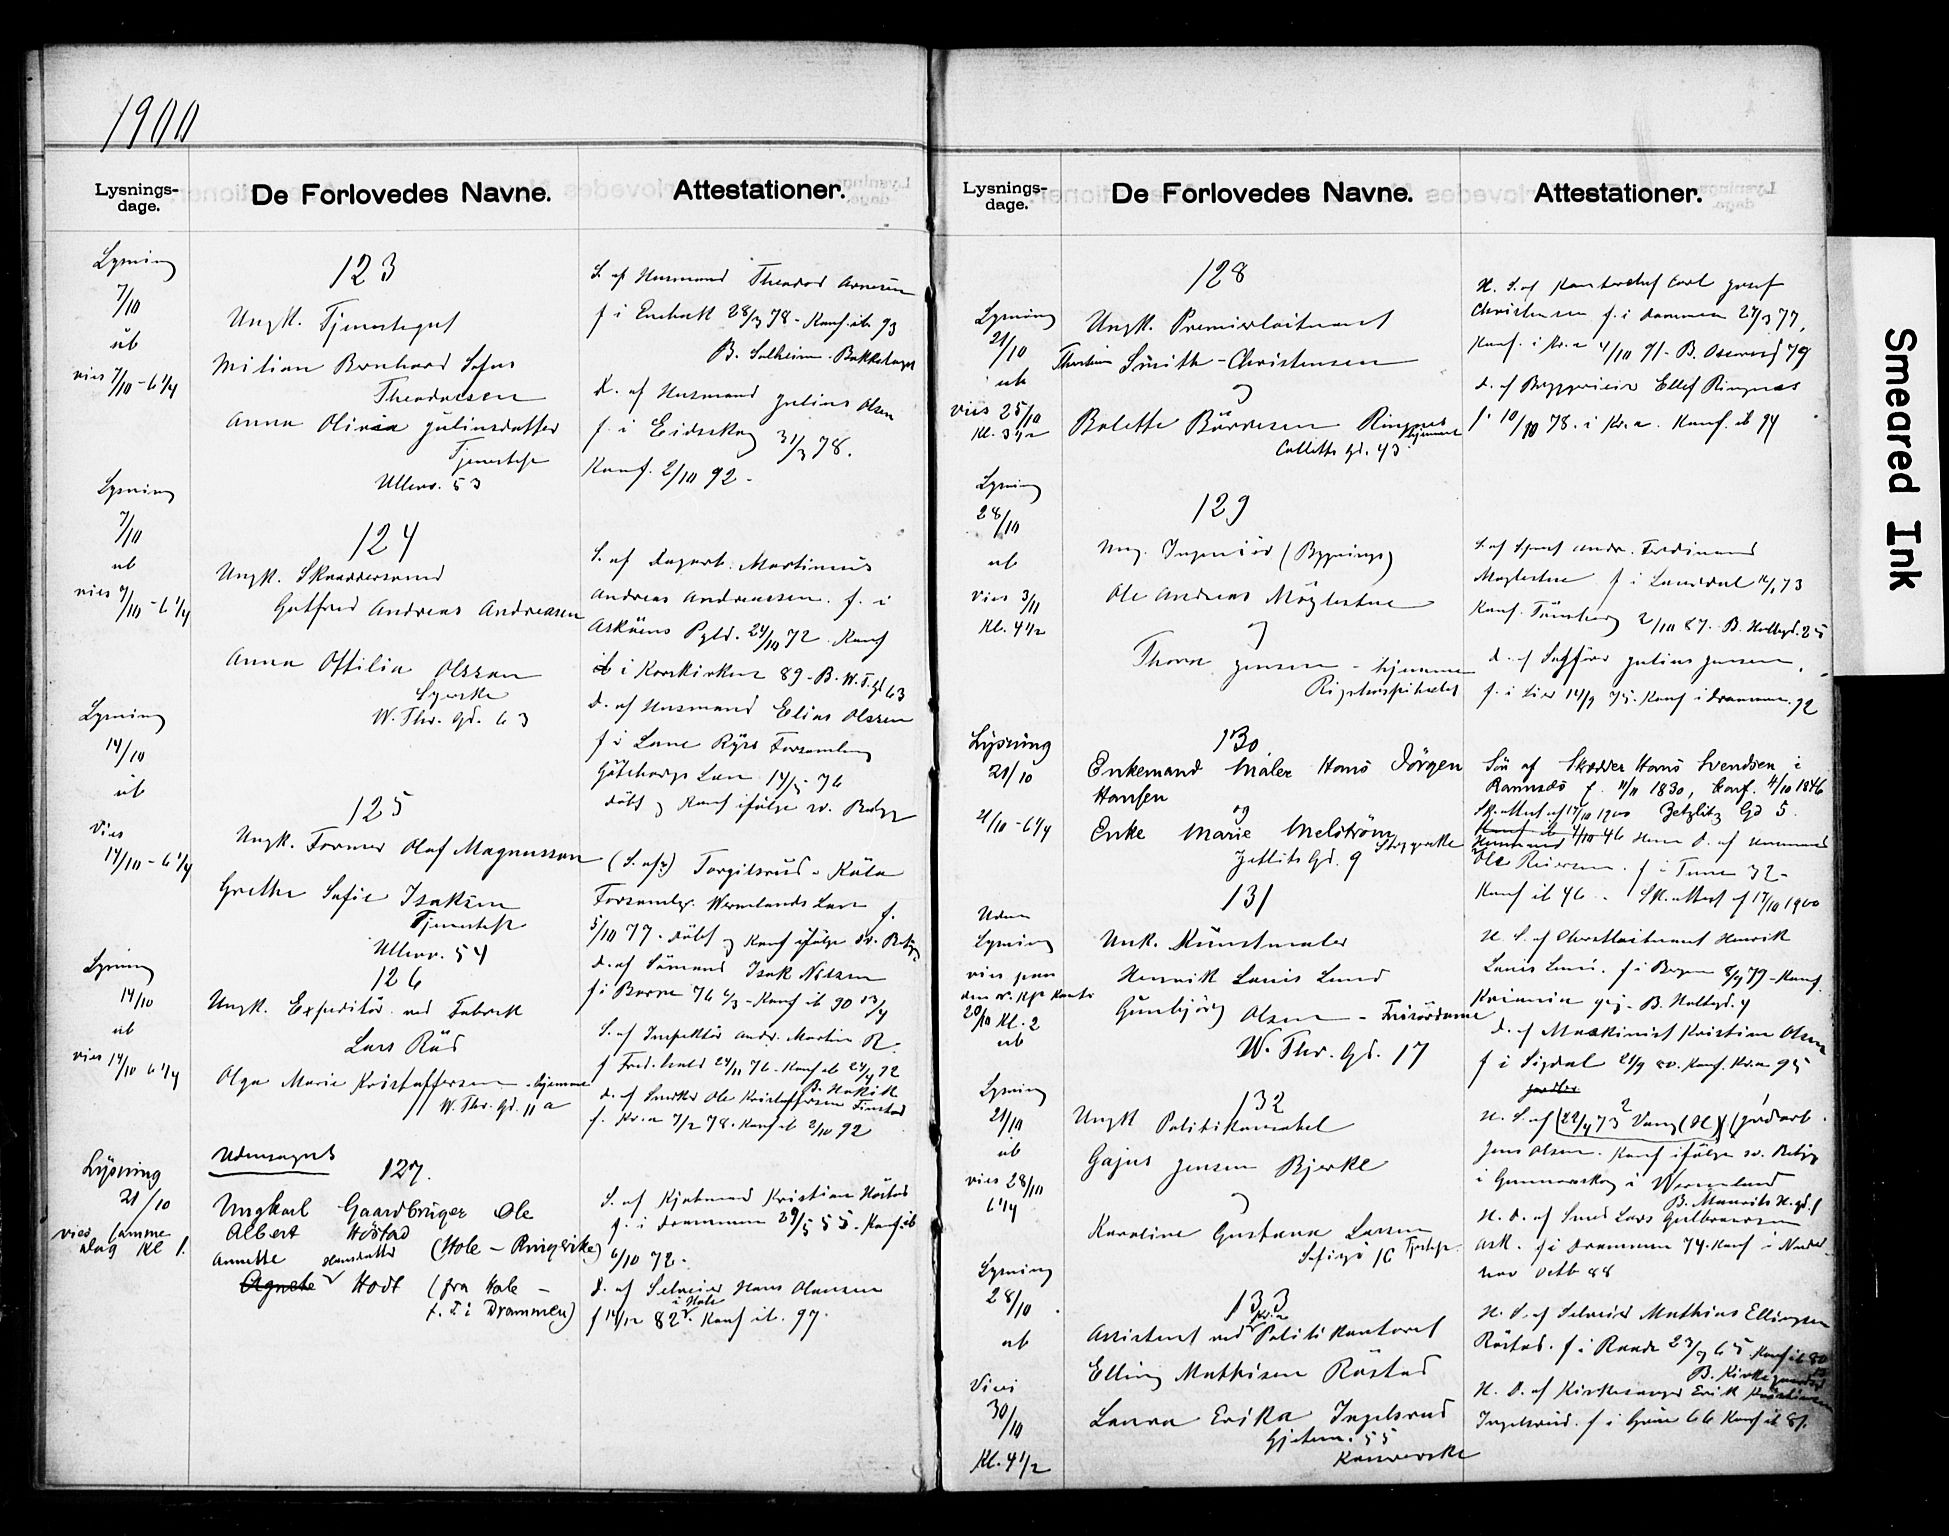 1900
Lysnings-
dage.
De Forlovedes Navne.
Attestationer.
Lysning
7/10
ub
vies 7/10 - 6 1/4
123
Ungk. Tjenestegut
Milian Bernhard Sofus
Theodorsen
Anna Olivia Juliusdatter
Tjenestepe
Ullevv. 53
S. af Husmand Theodor Arnesen
f i Enebakk 28/3 78 - Konf. ib. 93
B. Solheim. Bakkehaugen
D. af Husmand Julius Olsen
f. i Eidskog 31/3 78.
Konf. 2/10 92.
Lysning
7/10
ub
vies 7/10 - 6 1/4
124
Ungk. Skræddersvend
Gotfred Andreas Andreasen
Anna Ottilia Olsson
Syerske
W. Thr. Gd. 63
S. af Dagarb. Martinius
Andreas Andreassen. f. i
Asköens Pgld. 24/10 72. Konf
i Korskirken 89 - B. W. T. gd 63
D. af Husmand Elias Olssen
f i Lane Ryrs Forsamling
Göteborgs Len 14/5 - 76
döbt og Konf ifölge sv. Betyg
Lysning
14/10
ub
Vies
14/10 - 6 1/4
125
Ungk. Former Olaf Magnusson
Grethe Sofie Isaksen
Tjenestepe
Ullevv. 54
(S. af ?) Torgilsrud - Köla
Forsamlgr. Wermlands Len f.
5/10 77. döbt og Konf ifölge sv. Betyg.
D. af Sömand Isak Nilssen
f i Borre 76 6/3 - Konf ib 90 13/4
Lysning
14/10
ub
vies 14/10 6 1/4
126
Ungk. Expeditör ved Fabrik
Lars Röd
Olga Marie Kristoffersen - hjemme
W. Thr. Gd. 11 a
S. af Inspektör Andr. Martin R.
f Fred.hald 24/11 76 - Konf ib 24/4 92
D. af Snedker Ole Kristoffersen Finstad
f. Kr.a 7/2 78. Konf ib 2/10 92
Lysning
21/10
vies samme
dag Kl 1.
Udensogns
127.
Ungkarl Gaardbruger Ole
Albert Höstad
(Hole - Ringerike)
Annette Hansdatter
Agnete Hodt (fra Hole -
t. T i Drammen)
S. af Kjöbmand Kristian Höstad
f. i Drammen 29/5 55. Konf ib
6/10 72.
D. af Selveier Hans Olausen
i Hole
f 14/12 82. Konf ib. 97.
Lysnings-
dage.
De Forlovedes Navne.
Attestationer.
Lysning
21/10
ub
vies 25/10
Kl. 3 1/2
128
Ungk. Premierløitnant
Thorstein Smith-Christensen
og
Bolette Börresen Ringnes
hjemme
Colletts Gd. 43
H. S. af Kontorchef Carl Josef
Christensen f. i Drammen 27/3 77,
Konf. i Kr.a 4/10 91 - B. Oscarsgd 79
D. af Bryggerieier Ellef Ringnes
f. 10/10 78. i Kr.a. Konf. ib 94
Lysning
28/10
ub
vies 3/11
Kl. 4 1/2
129
Ung. Ingeniör (Bygnings)
Ole Andreas Möglestue
og
Thora Jensen - hjemme
Rigshospitalet
Möglestue f i Laurdal 73
Konf. Tönsberg 2/10 87. B. Holbgd. 25
D. af Julius Jensen.
f. i Lier 14/9 75. Konf i Drammen 92
Lysning
21/10
21/10 - 6 1/4
130
Enkemand Maler Hans Jörgen
Hansen
og
Enke Marie Melström
Strygerske
Zetlits Gd. 9
Sön af Skrædder Hans Svendsen i
Ramnæs f. 11/11 1830, konf. 4/10 1846
Sk. attest af 17/10 1900 Zetzlitz Gd 5.
Konf ib 4/10 46 Hun D. af Husmand
Ole Reiersen. f i Tune 32 -
Konf ib 46. Sk. attest af 17/10 1900
Uden
Lysning
vies paa
den v. Kfs Kontor
20/10 Kl. 2
ub
131
Unk. Kunstmaler
Henrik Louis Lund
Gunbjörg Olsen - Frisördame
W. Thr. Gd. 17
H. S. af Oberstløitnant Henrik
Louis Lund. f i Bergen 8/9 79 - Konf.
B. Holbgd. 4
D. af Maskinist Kristian Olsen
f i Sigdal 21/9 80. Konf. Kr.a 95
Lysning
21/10
ub
vies 28/10
6 1/4
132
Ungk Politikonstabel
Gajus Jensen Bjerke
og
Karoline Gustava Larsen
Tjpige.
Sofiegd 16
H. S. af (22/4 73 Vang (H) (jordarb.
Jens Olsen. Konf ifölge sv. Betyg
i Gunnarskog i Wermland
B. Maurits H. gd. 1
H. D. af Smed Lars Gulbransen
Ask. f i Drammen 74. Konf i
88
Lysning
28/10
ub
Vies
30/10
Kl. 4 1/2
133
Kr.a
Assistent ved Politikontoret
Elling Mathisen Röstad
Laura Erika Ingelsrud
Gjetem. 55
Kontorske
H. S. af Selveier Mathias Ellingsen
Röstad. f i Raade 23/9 65 Konf ib 80
B. Kirkegaardsgd
H. D. af Kirkesanger Erik Kristian
Ingelsrud. f i Grue 66 Konf ib 81.
Smeared Ink